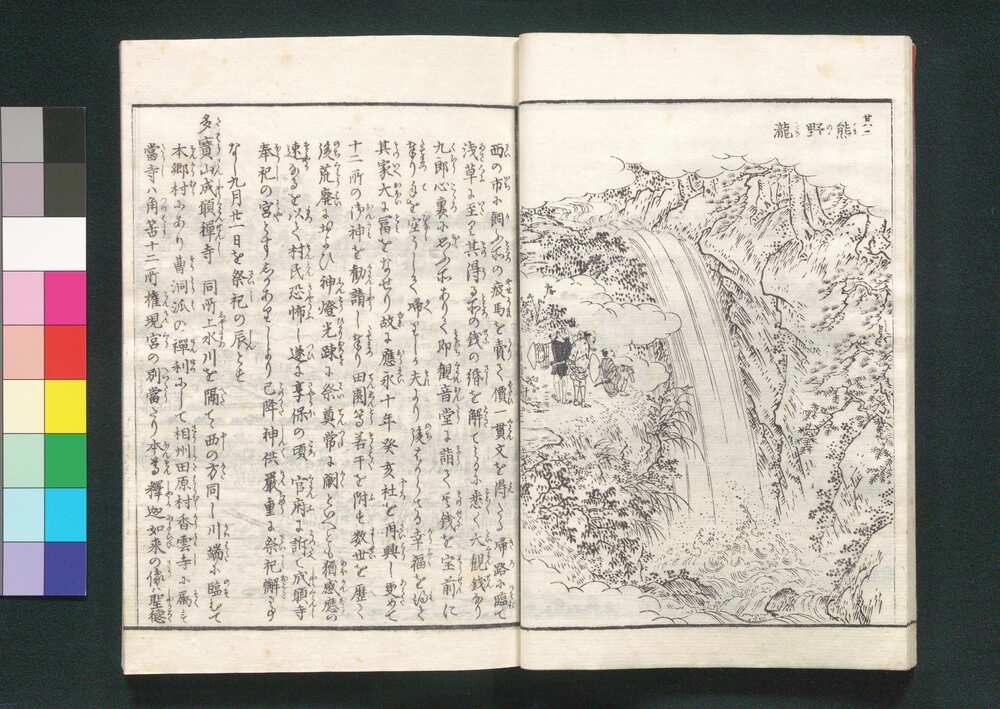 廿八ノ一
熊野瀧
西の市に飼ふ所の疲馬を賣て價一貫文を得たる帰路に臨て
浅草に至り其得る所の銭の緡を解てみるに悉く大観銭なり
九郎心裏に思ふ所ありて即観音堂に詣てその銭を宝前に
なけ手を空うして帰りしか夫より後はからさる幸福を得て
其家大に冨をなせり故に應永十年癸亥社を再興し更めて
十二所の御神を勧請しなり田園等若干を附す数世を歴て
後荒廃におよひ神燈光疎に祭奠常に闕といへとも猶感應の
速なるを以て村民恐怖し遂に享保の頃官府に訴て成願寺
奉祀の宮とすしかありしより已降神供嚴重に祭祀懈るなし
九月廿一日を祭祀の辰とせり
多寳山成願禅寺 同所上水川を隔て西の方同し川端に臨して
本郷村にあり曹洞派の禅刹にして相州田原村香雲寺に属す
當寺ハ角筈十二所権現宮の別當たり本尊釋迦如来の像ハ聖徳